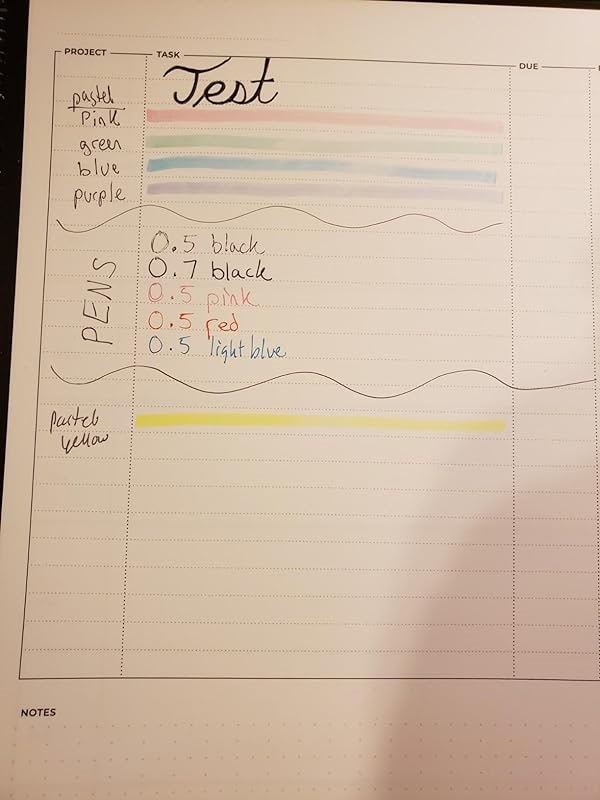 PROJECT TASK DUE
Test
pastel
Pink
green
blue
purple
PENS
0.5 black
0.7 black
0.5 pink
0.5 red
0.5 light blue
pastel
yellow
NOTES